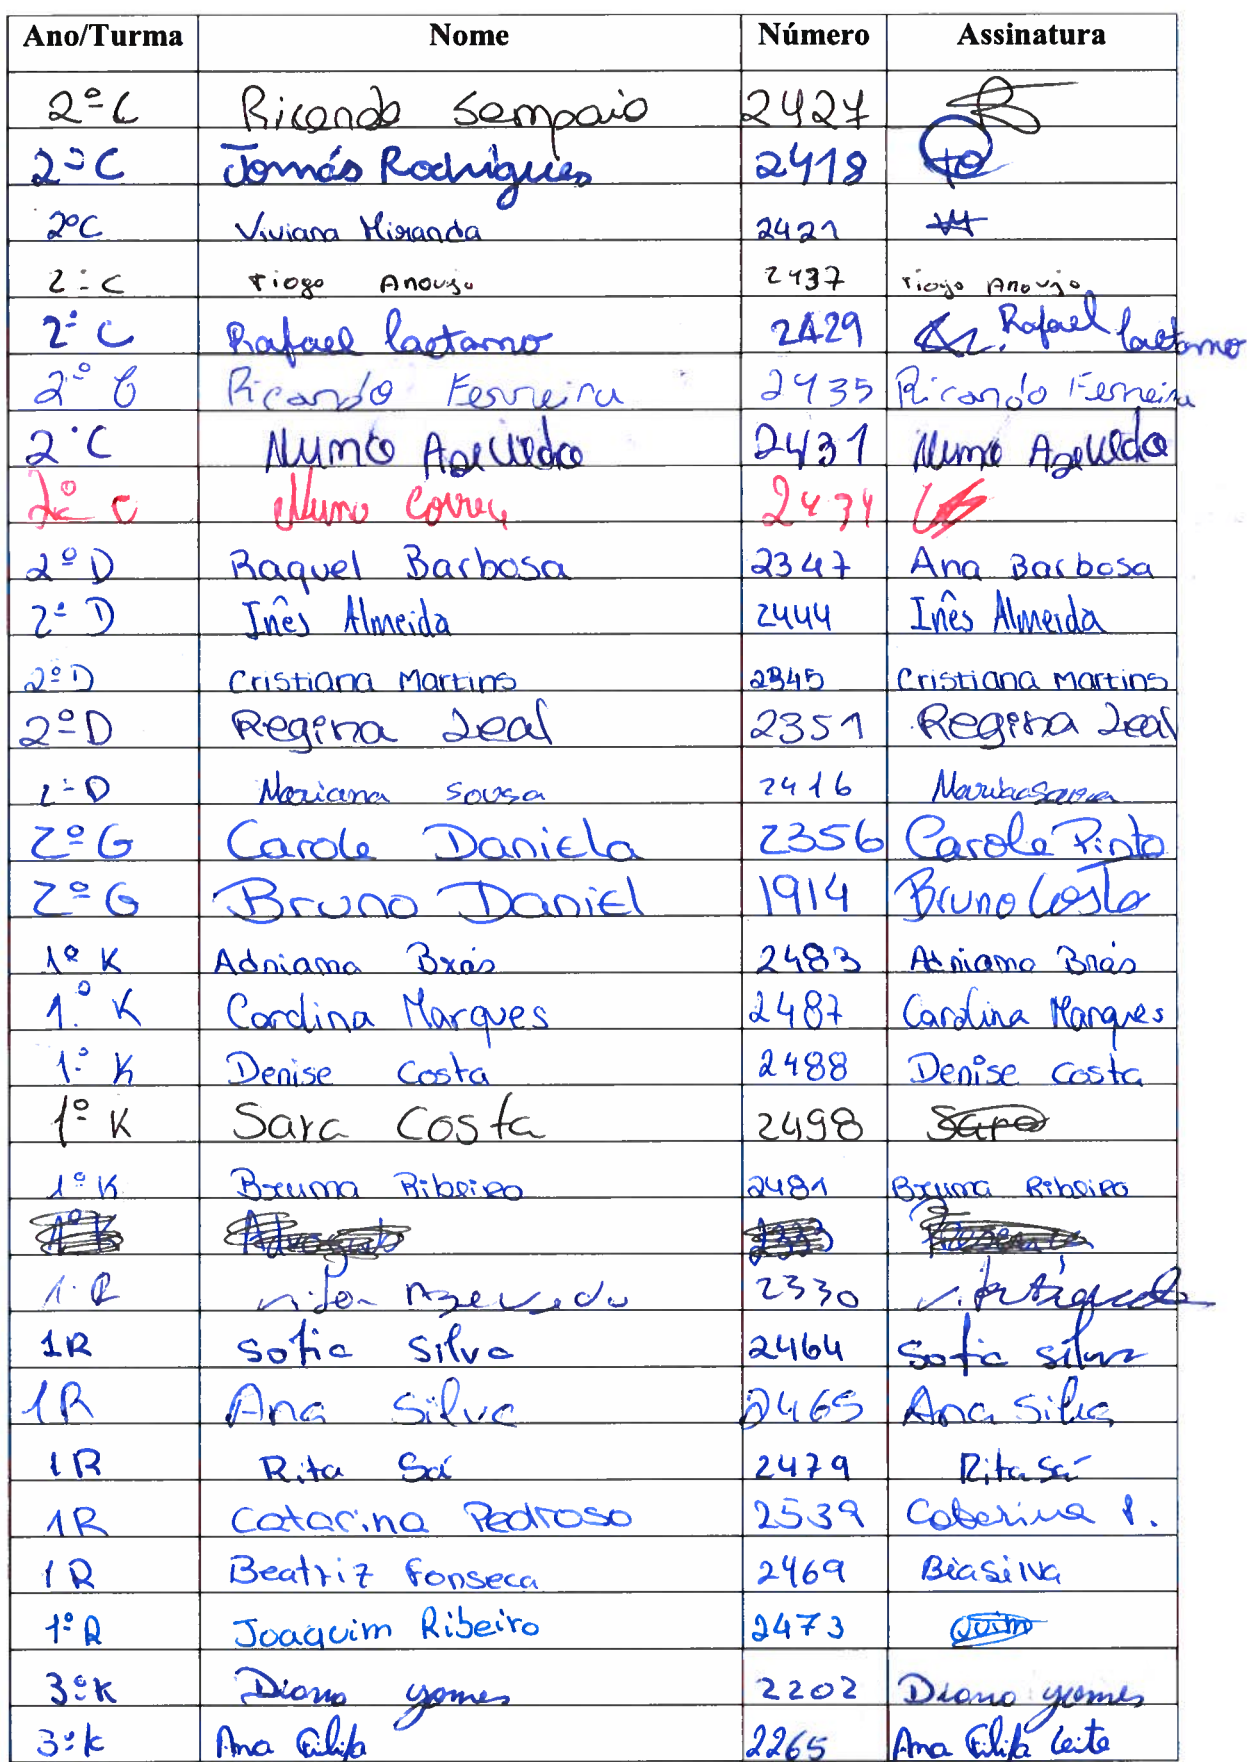 Ano/Turma Nome Número Assinatura
2º C Ricardo Sampaio 2427
2º C Tomás Rodrigues 2418
2ºC Viviana Miranda 2421
2º C Tiago Araujo 2437 Tiago Araujo
2º C Rafael Caetano 2429 Rafael Caetano
2º C Ricardo Ferreira 2435 Ricardo Ferreira
2º C Nuno Azevedo 2431 Nuno Azevedo
2º C Nuno Correia 2434
2º D Raquel Barbosa 2347 Ana Barbosa
2º D Inês Almeida 2444 Inês Almeida
2º D Cristiana Martins 2345 Cristiana Martins
2º D Regina Leal 2351 Regina Leal
2º D Mariana Sousa 2416
2º G Carole Daniela 2356 Carole Pinto
2º G Bruno Daniel 1914 Bruno Costa
1º K Adriana Brás 2483 Adriana Brás
1.º K Carolina Marques 2487 Carolina Marques
1.º K Denise Costa 2488 Denise Costa
1º K Sara Costa 2498 Sara
1º K Bruna Ribeiro 2481 Bruna Ribeiro
1º R Vitor Azevedo 2330
1R Sofia Silva 2464 Sofia Silva
1R Ana Silva 2465 Ana Silva
1R Rita Sá 2479 Rita Sá
1R Catarina Pedroso 2539 Catarina P.
1R Beatriz Fonseca 2469 Bia Silva
1º R Joaquim Ribeiro 2473 Quim
3º K Diana Gomes 2202 Diana Gomes
3º K Ana Filipa 2265 Ana Filipa Leite